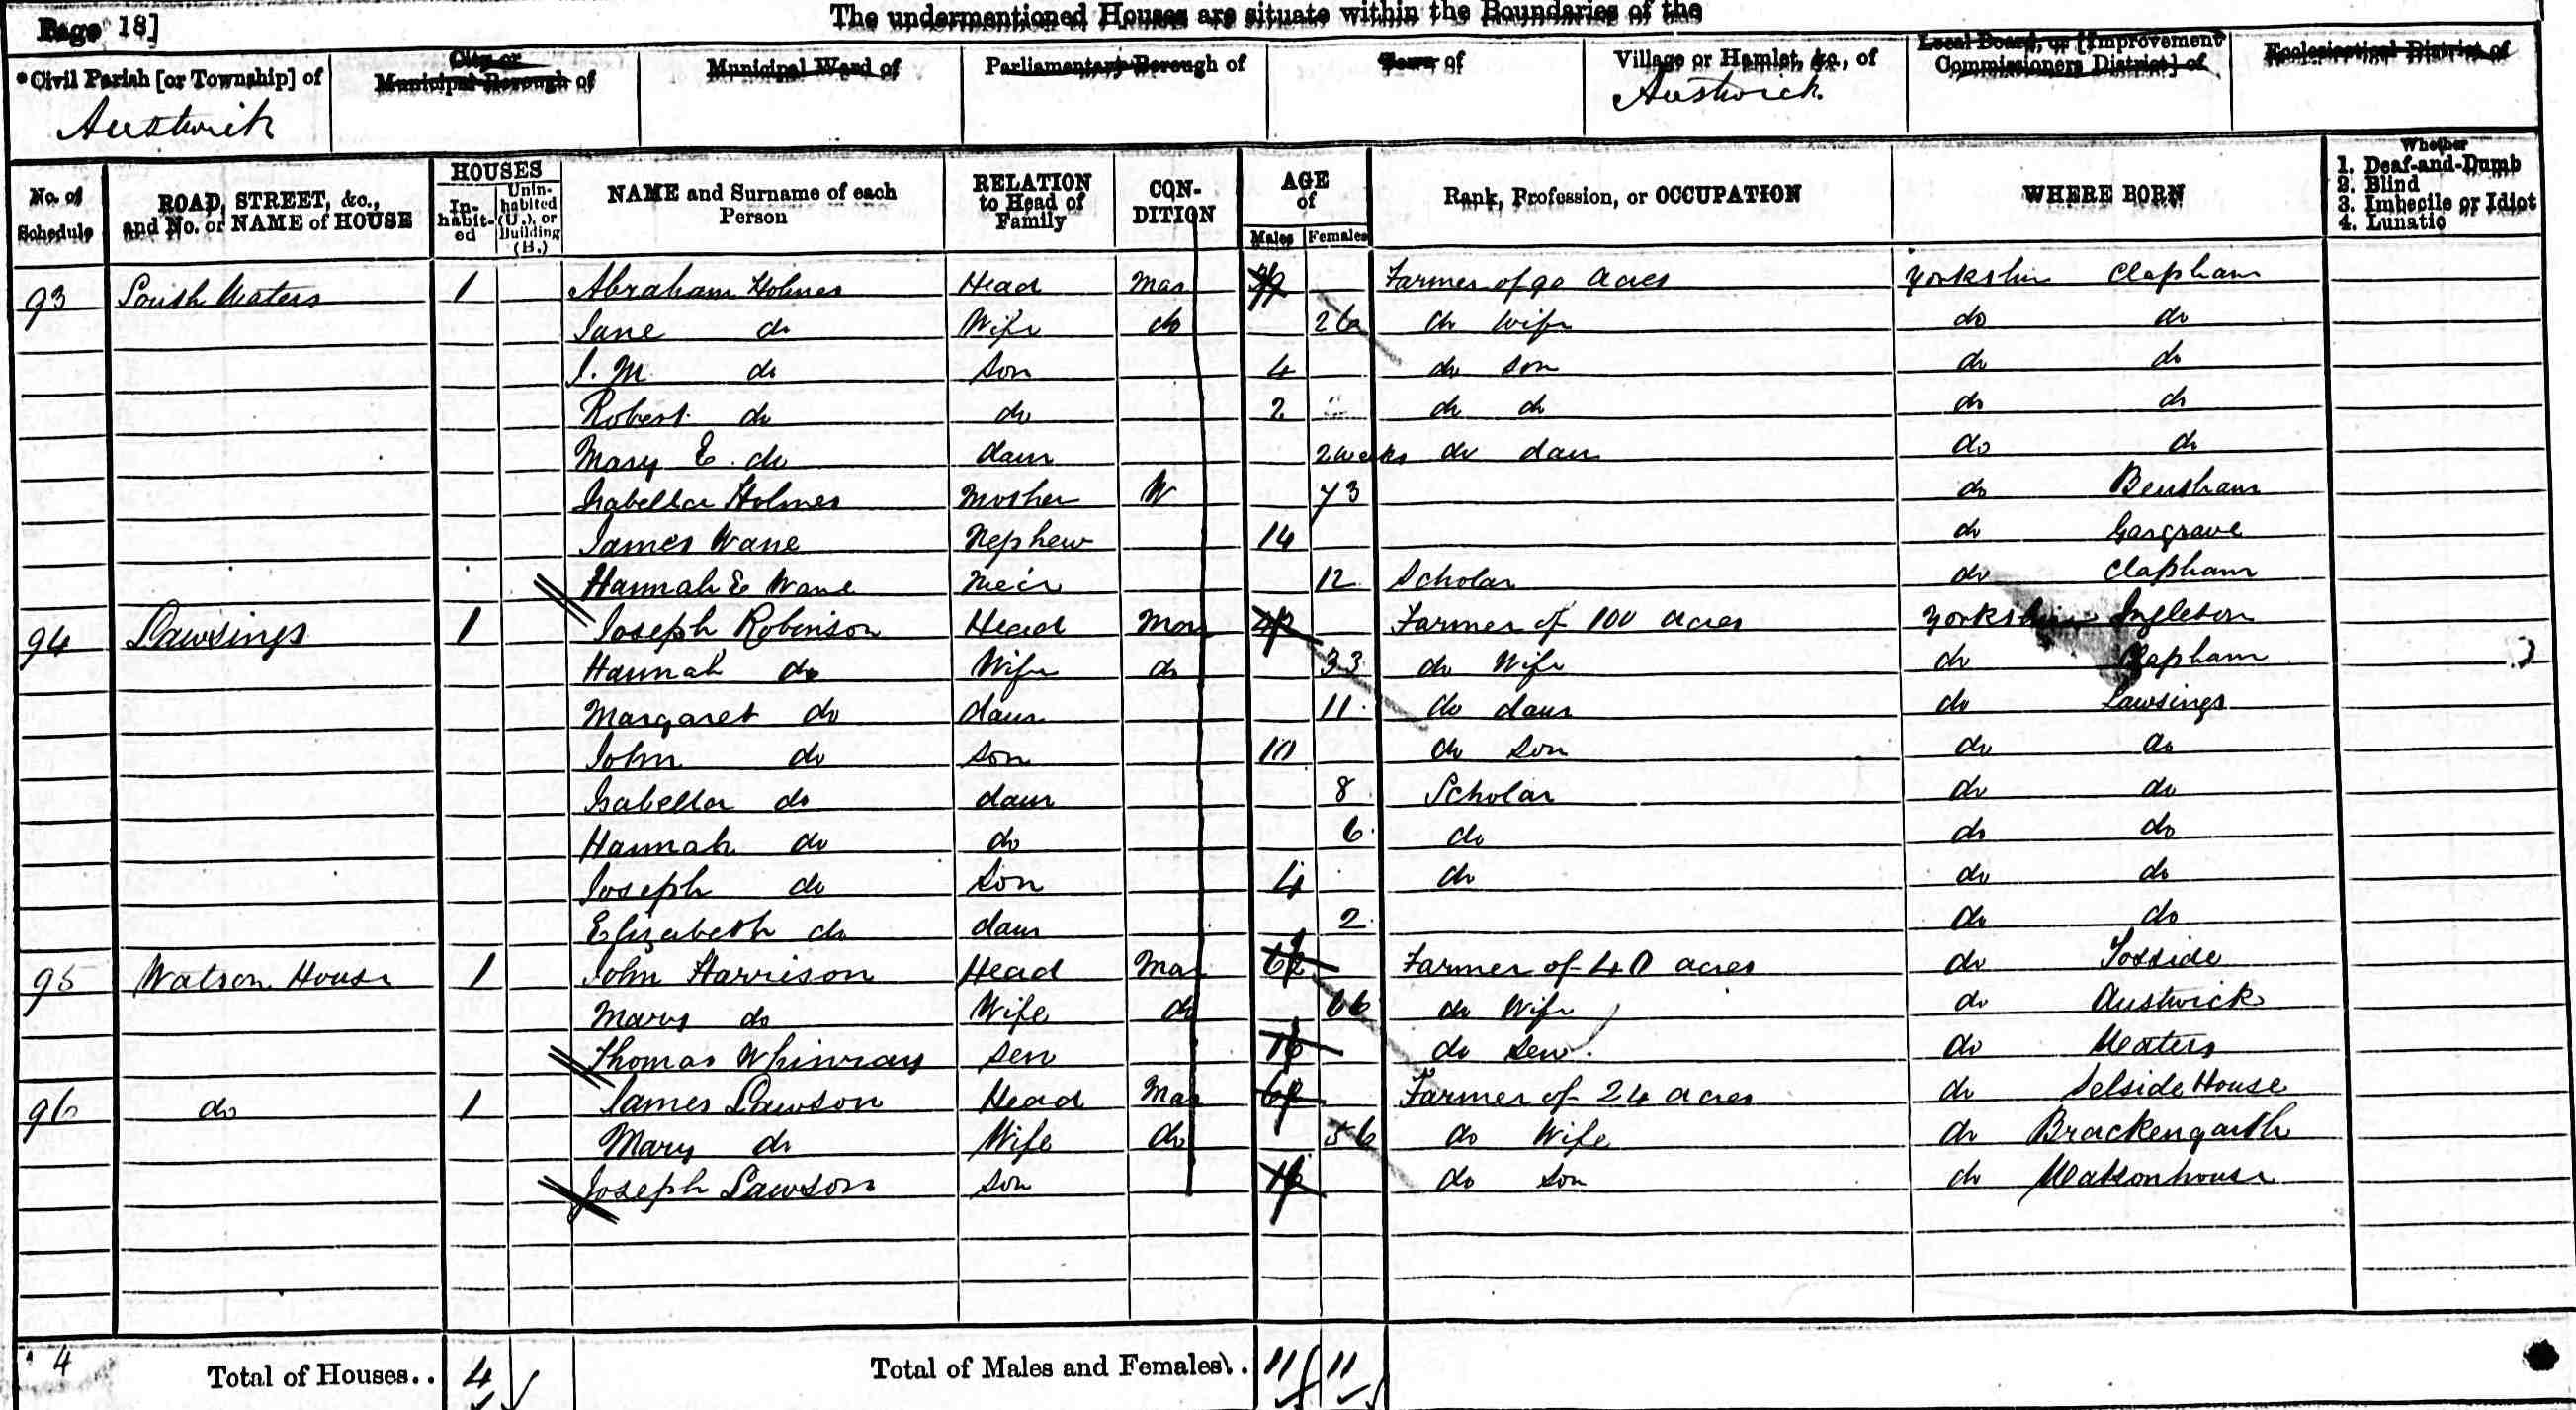 Page 18]
The undermentioned Houses are situate within the Boundaries of the
*Civil Parish [or Township] of
City or Municipal Borough of
Municipal Ward of
Parliamentary Borough of
Town of
Village or Hamlet, &c., of
Local Board, or [Improvement Commissioners District] of
Ecclesiastical District of
Austwick
Austwick
No. of Schedule
ROAD, STREET, &c., and No. or NAME of HOUSE
HOUSES
In-habit-ed
Unin-habited (U.), or Building (B.)
NAME and Surname of each Person
RELATION to Head of Family
CON-DITION
AGE of
Males
Females
Rank, Profession, or OCCUPATION
WHERE BORN
Whether
1. Deaf-and-Dumb
2. Blind
3. Imbecile or Idiot
4. Lunatic
93 South Waters 1 Abraham Holmes Head Mar Farmer of 90 acres Yorkshire Clapham
Jane do Wife do 26 do wife do do
J. M do Son 4 do son do do
Robert do do 2 do do do do
Mary E. do daur 2 weeks do daur do do
Isabella Holmes Mother W 73 do Bentham
James Wane Nephew 14 do Gargrave
Hannah E Wane Neice 12 Scholar do Clapham
94 Lawsings 1 Joseph Robinson Head Mar Farmer of 100 acres Yorkshire Ingleton
Hannah do Wife do 33 do Wife do Clapham
Margaret do daur 11 do daur do Lawsings
John do son 10 do son do do
Isabella do daur 8 Scholar do do
Hannah do do 6 do do do
Joseph do Son 4 do do do
Elizabeth do daur 2 do do
95 Watson House 1 John Harrison Head Mar Farmer of 40 acres do Tosside
Mary do Wife do 66 do Wife do Austwick
Thomas Whinray Serv do Serv. do
96 do 1 James Lawson Head Mar Farmer of 24 acres do Selside House
Mary do Wife do 56 do Wife do Brackengarth
Joseph Lawson son do son do Watsonhouse
4 Total of Houses.. 4 Total of Males and Females.. 11 11